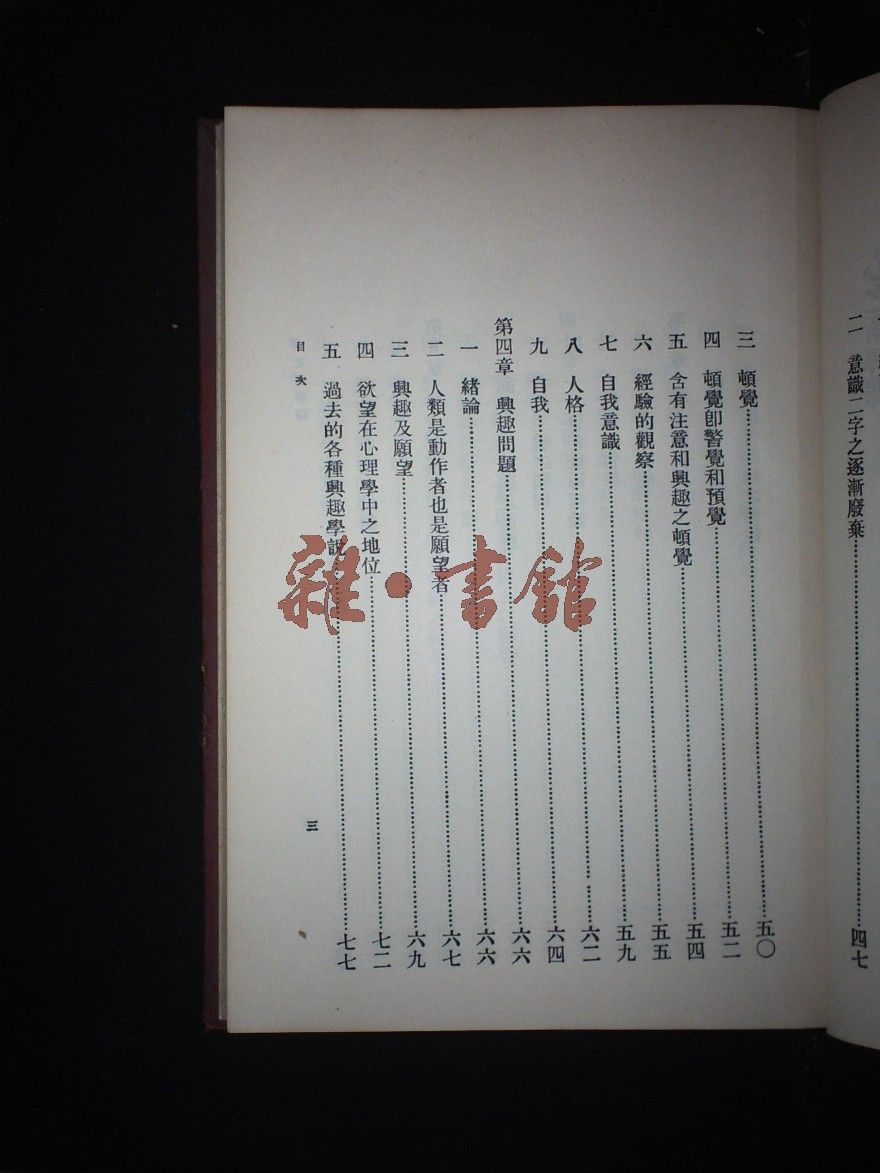 二　意識二字之逐漸廢棄……四七
三　頓覺……五〇
四　頓覺卽警覺和預覺……五二
五　含有注意和興趣之頓覺……五四
六　經驗的觀察……五五
七　自我意識……五九
八　人格……六二
九　自我……六四
第四章　興趣問題……六六
一　緒論……六六
二　人類是動作者也是願望者……六七
三　興趣及願望……六九
四　欲望在心理學中之地位……七二
五　過去的各種興趣學說……七七
目次
三
雜·書館